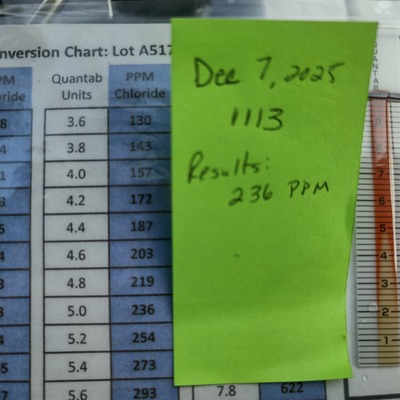 nversion Chart: Lot A517
PM Quantab PPM
oride Units Chloride
8 3.6 130
4 3.8 143
1 4.0 157
3 4.2 172
5 4.4 187
4.6 203
3 4.8 219
3 5.0 236
5.2 254
5 5.4 273
7 5.6 293 7.8 622
Dec 7, 2025
1113
Results:
236 PPM
QUANTAB
7
6
5
4
3
2
1